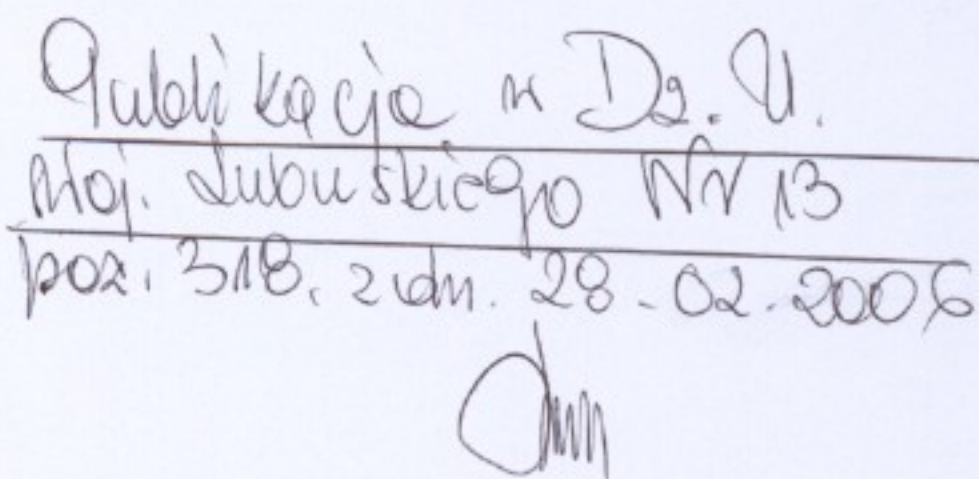 Publikacja w Dz. U.
Woj. Lubuskiego Nr 13
poz. 318. z dn. 28-02-2006